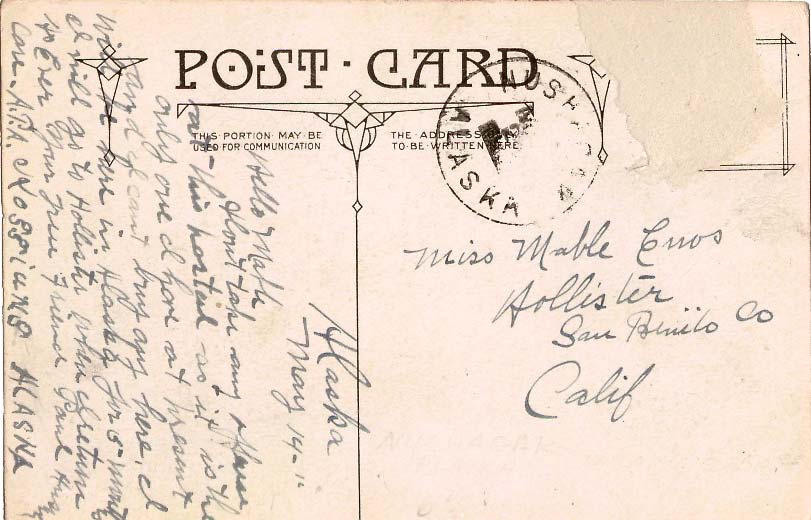 POST·CARD
THIS PORTION MAY BE
USED FOR COMMUNICATION
THE ADDRESS ONLY
TO BE WRITTEN HERE
NUSHAGAK
ALASKA
Alaska
May 14-"
Hello Mable
don't take any offence
over this postal as it is the
only one I have at present
and I cant buy any here, I
Will be here in Alaska for 5-mont
I will go to Hollister when I return
As Ever Your True Friend
Care A.P.A. KOGGIUNG ALASKA
Miss Mable Enos
Hollister
San Benito Co
Calif